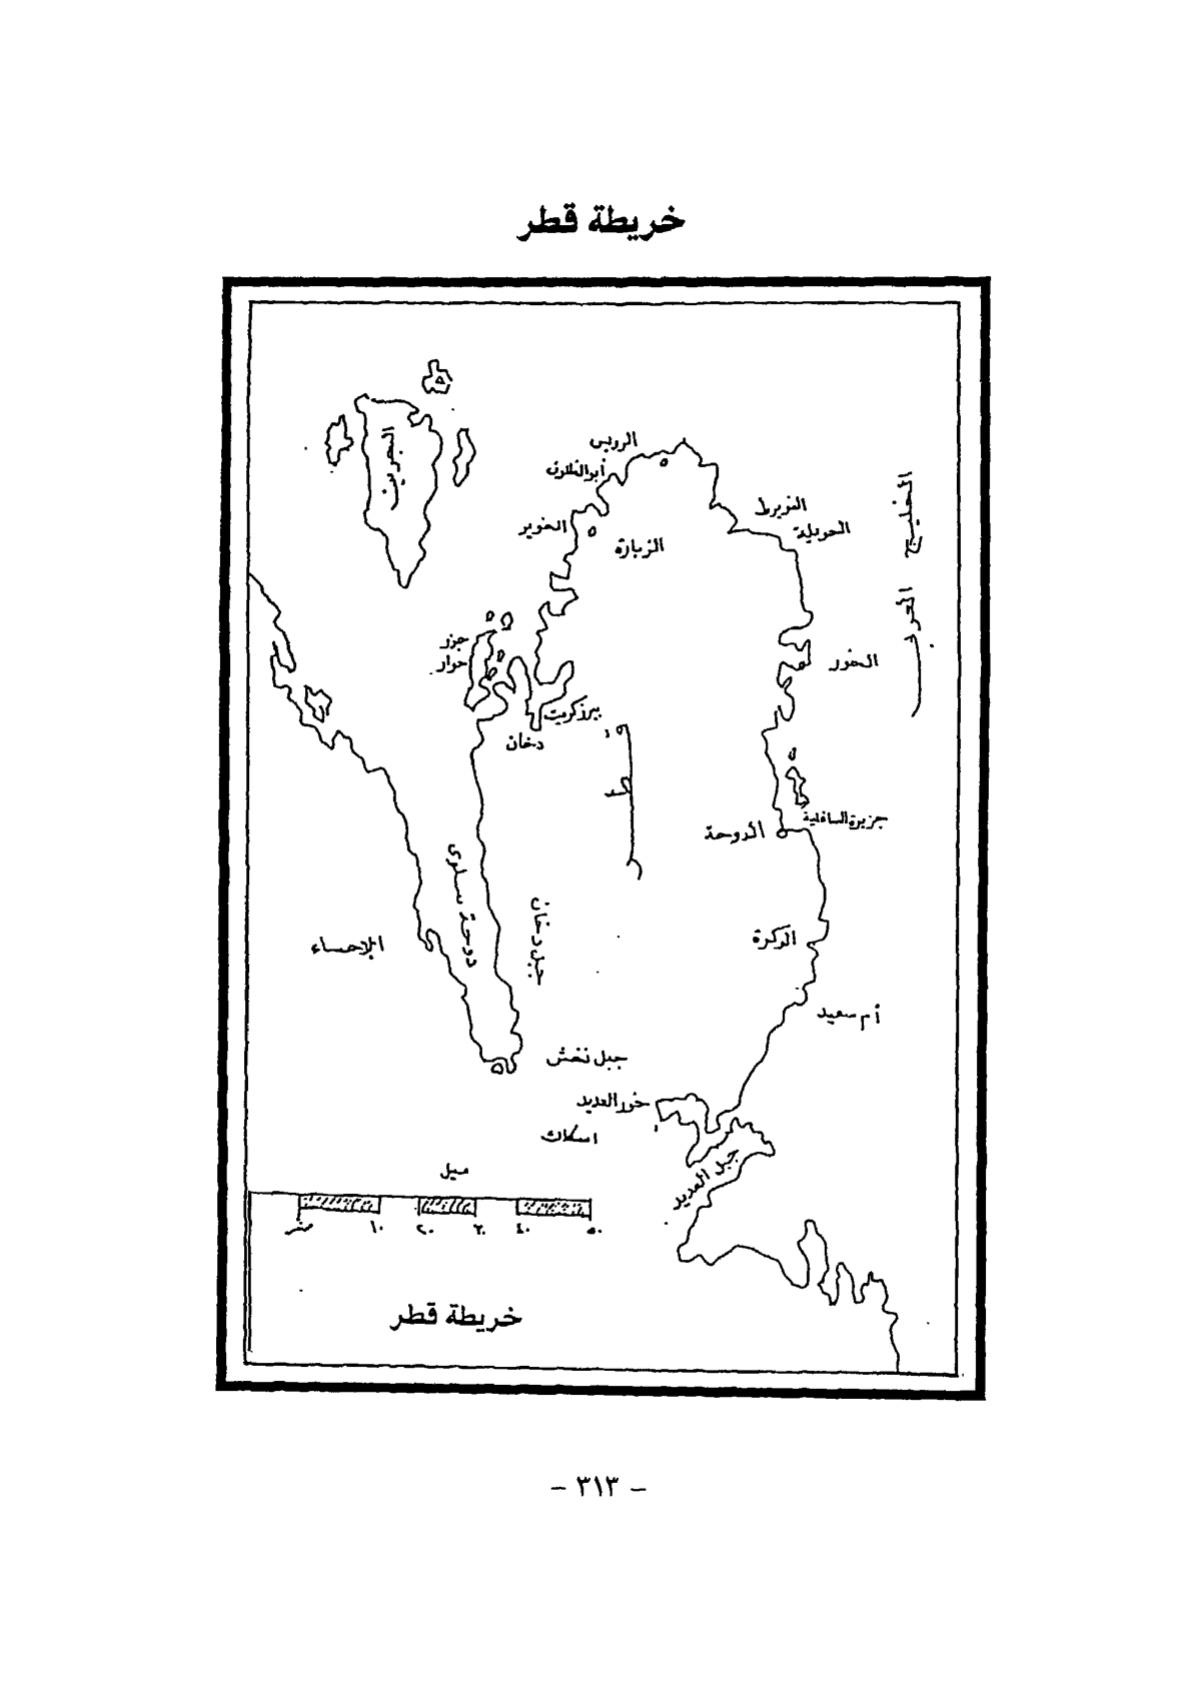 خريطة قطر
البحرين
الرويس
أبو الظلوف
الخوير
الزبارة
الغويرط
الحويلة
الخليج العربي
جزر
حوار
الخور
بيرزكريت
دخان
قطر
جزيرة السافلية
الدوحة
دوحة سلوى
جبل دخان
الاحساء
الوكرة
أم سعيد
جبل نخش
خور العديد
اسكاك
جبل العديد
ميل
صفر ١٠ ٢٠ ٣٠ ٤٠ ٥٠
خريطة قطر
– ٣١٣ –